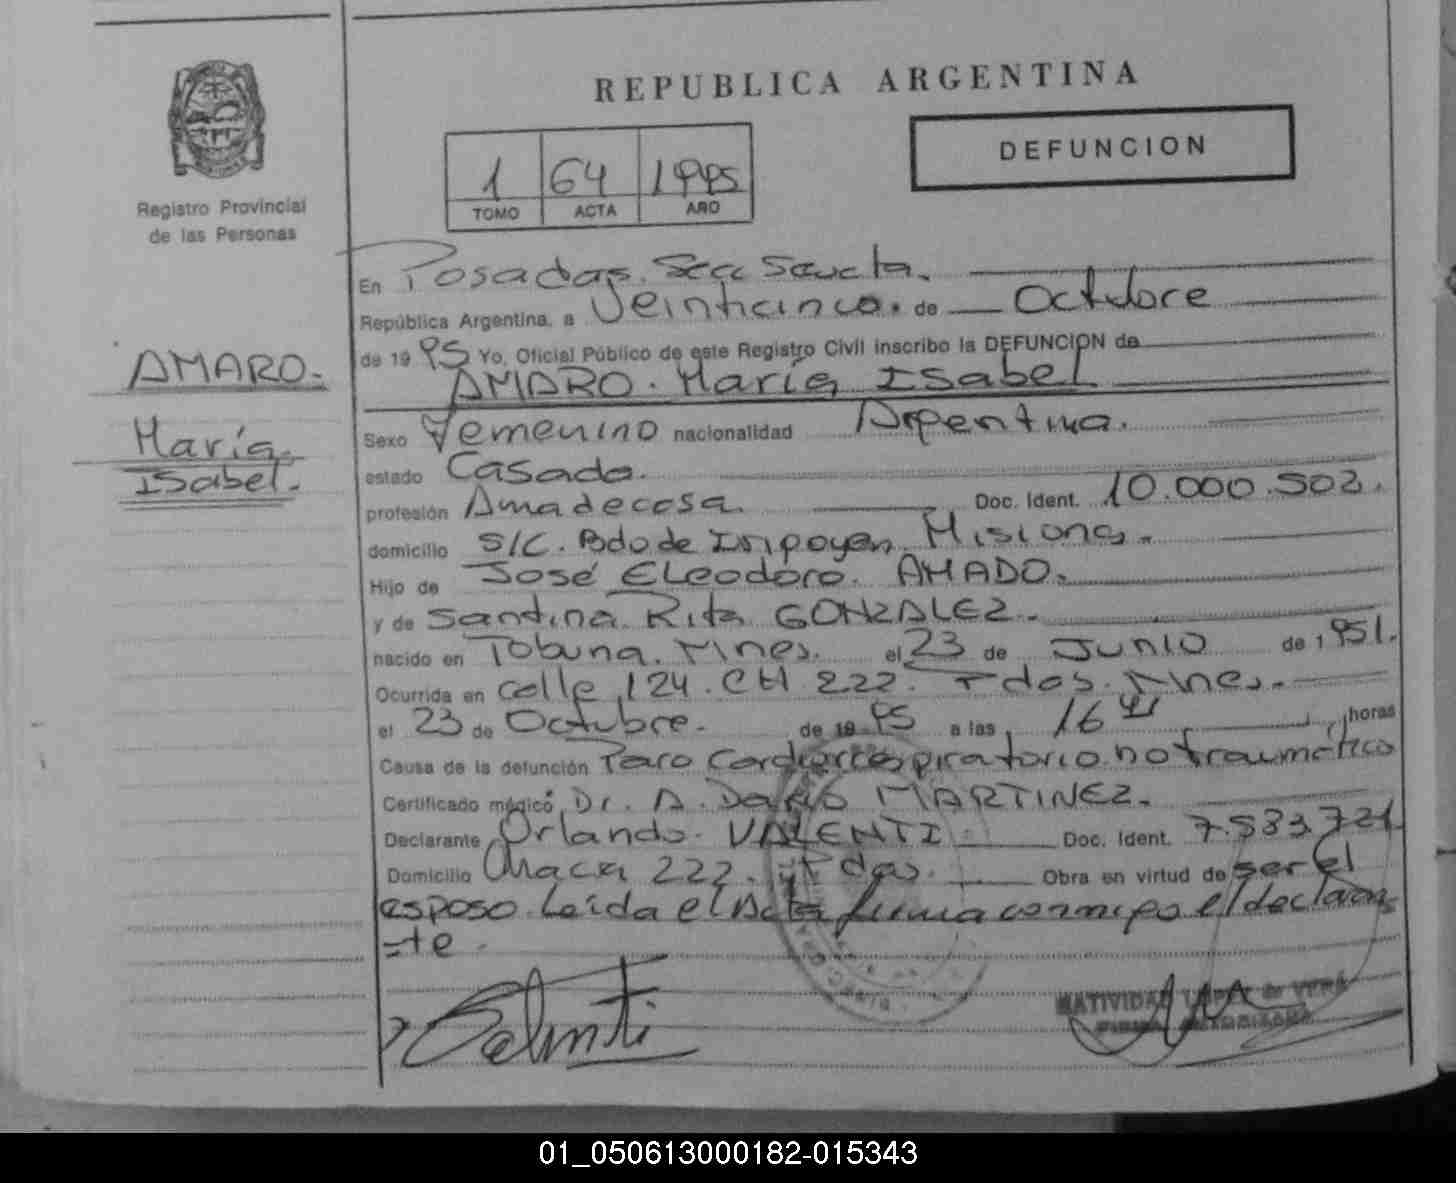 REPUBLICA ARGENTINA
DEFUNCION
1 64 1995
TOMO ACTA AÑO
Registro Provincial
de las Personas
AMARO.
María
Isabel.
En Posadas. Secc Sexta.
República Argentina, a Veinticinco. de Octubre
de 1995 Yo, Oficial Público de este Registro Civil inscribo la DEFUNCION de
AMARO. María Isabel
Sexo Femenino nacionalidad Argentina.
estado Casada.
profesión Amadecasa. Doc. Ident. 10.000.502.
domicilio S/C. Bdo de Irigoyen Misiones.
Hijo de José Eleodoro. AMADO.
y de Santina Rita GONZALEZ.
nacido en Tobuna. Mnes. el 23 de Junio de 1951.
Ocurrida en calle 124. CH 222. Pdas. Mnes.
el 23 de Octubre. de 1995 a las 16 horas
Causa de la defunción Paro Cardiorrespiratorio no traumático
Certificado médico Dr. A. Darío MARTINEZ.
Declarante Orlando. VALENTI Doc. Ident. 7.533.721
Domicilio Chaca 222. Pdas. Obra en virtud de ser el
esposo. Leída el Acta firma conmigo el declaran
=te.
NATIVIDAD LOPEZ de VERA
01_050613000182-015343